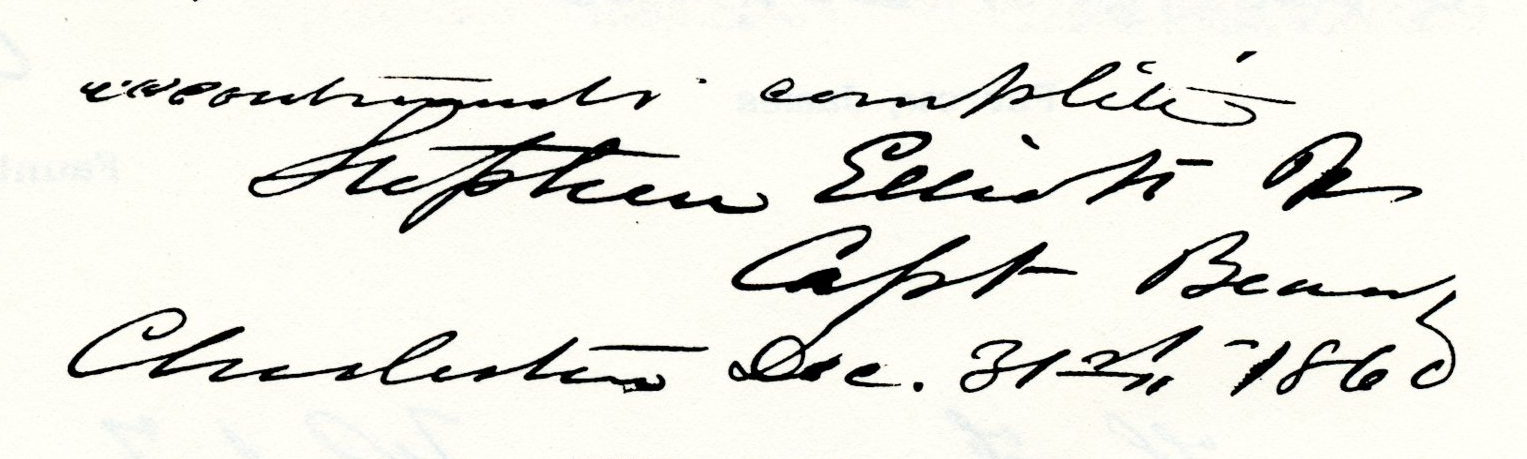 accoutrements complete
Stephen Elliott Jr
Capt Beau
Charleston Dec. 31st 1860